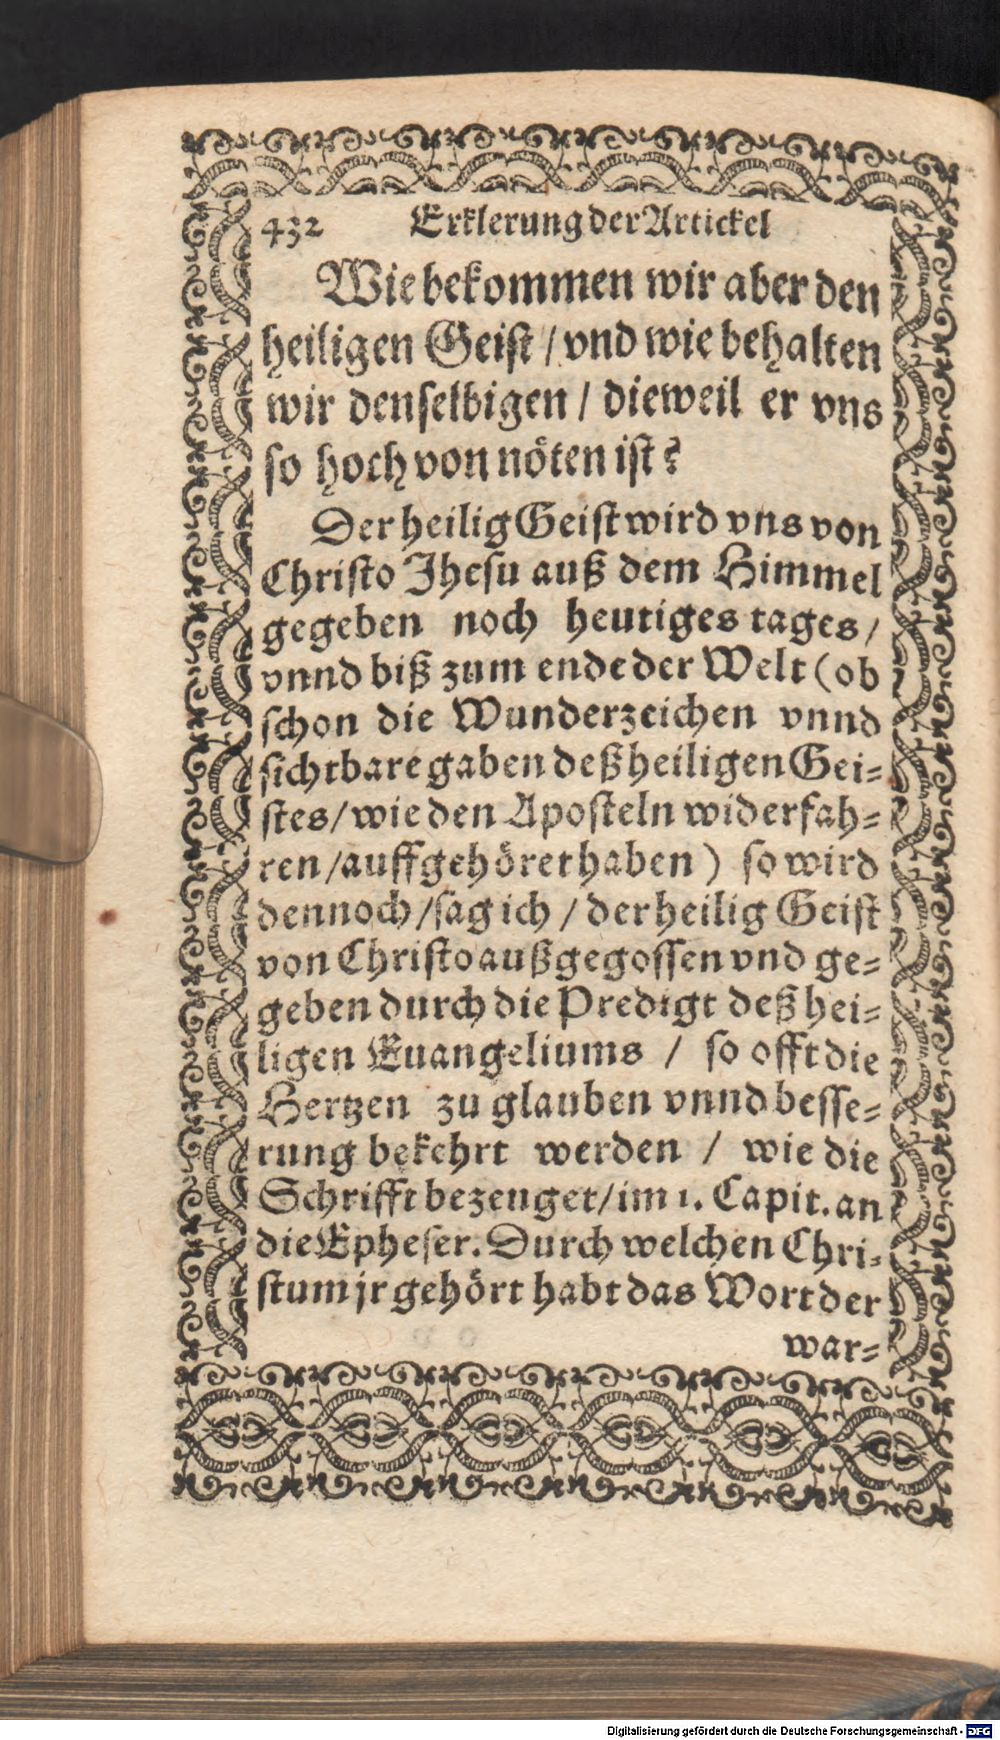 432 Erklerung der Artickel
Wie bekommen wir aber den
heiligen Geist / vnd wie behalten
wir denselbigen / dieweil er vns
so hoch von nöten ist?
Der heilig Geist wird vns von
Christo Jhesu auß dem Himmel
gegeben noch heutiges tages /
vnnd biß zum ende der Welt (ob
schon die Wunderzeichen vnnd
sichtbare gaben deß heiligen Gei-
stes / wie den Aposteln widerfah-
ren / auffgehöret haben) so wird
dennoch / sag ich / der heilig Geist
von Christo außgegossen vnd ge-
geben durch die Predigt deß hei-
ligen Euangeliums / so offt die
Hertzen zu glauben vnnd besse-
rung bekehrt werden / wie die
Schrifft bezeuget / im 1. Capit. an
die Epheser. Durch welchen Chri-
stum jr gehört habt das Wort der
war-
Digitalisierung gefördert durch die Deutsche Forschungsgemeinschaft - DFG